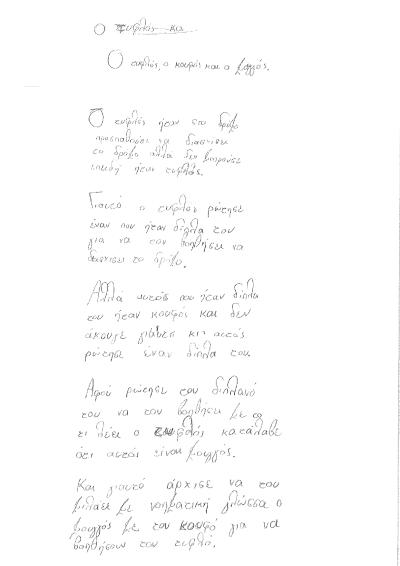 Ο τυφλός και
Ο τυφλός, ο κουφός και ο μουγγός.
Ο τυφλός ήταν στο δρόμο
προσπαθούσε να διασχίσει
το δρόμο αλλά δεν μπορούσε
επειδή ήταν τυφλός.
Γιαυτό ο τυφλος ρώτησε
έναν που ήταν δίπλα του
για να τον βοηθήσει να
διασχισει το δρόμο.
Αλλά αυτός που ήταν δίπλα
του ήταν κουφός και δεν
άκουγε γιαυτό κι αυτός
ρώτησε έναν δίπλα του
Αφού ρώτησε τον διπλανό
του να τον βοηθήσει με
τι λέει ο τυφλός κατάλαβε
ότι αυτός είναι μουγγός.
Και γιαυτό άρχισε να του
μιλάει με νοηματική γλώσσα ο
μουγγός με τον κουφό για να
βοηθήσουν τον τυφλό.